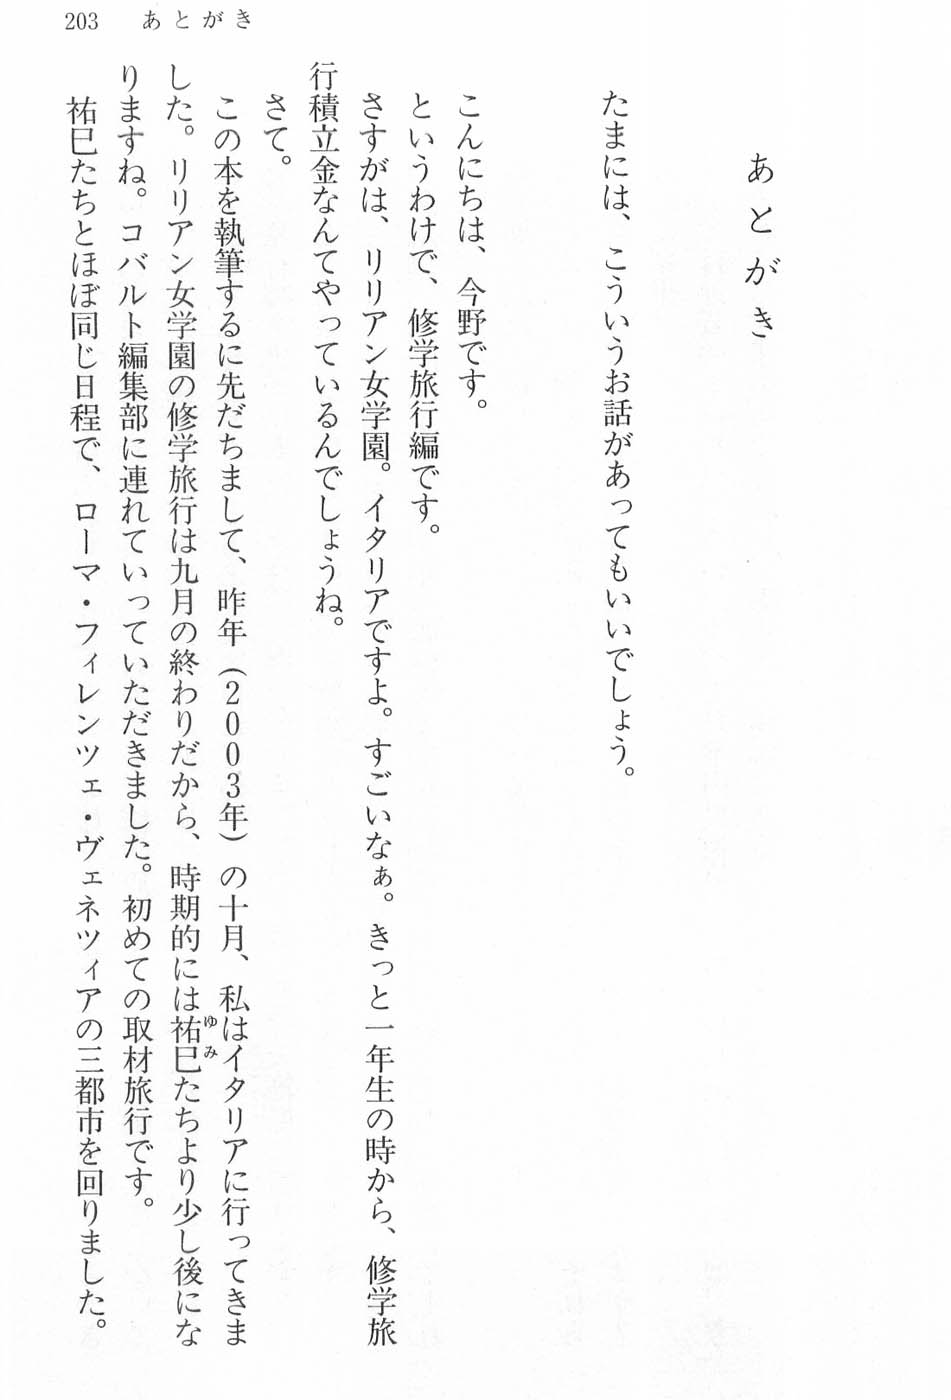 203 あとがき
あとがき
たまには、こういうお話があってもいいでしょう。
こんにちは、今野です。
というわけで、修学旅行編です。
さすがは、リリアン女学園。イタリアですよ。すごいなぁ。きっと一年生の時から、修学旅
行積立金なんてやっているんでしょうね。
さて。
この本を執筆するに先だちまして、昨年(2003年)の十月、私はイタリアに行ってきま
した。リリアン女学園の修学旅行は九月の終わりだから、時期的には祐巳たちより少し後にな
ゆみ
りますね。コバルト編集部に連れていっていただきました。初めての取材旅行です。
祐巳たちとほぼ同じ日程で、ローマ・フィレンツェ・ヴェネツィアの三都市を回りました。